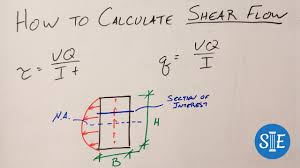 HOW TO CALCULATE SHEAR FLOW
τ = VQ / It
q = VQ / I
SECTION OF
INTEREST
N.A.
H
B
SIE